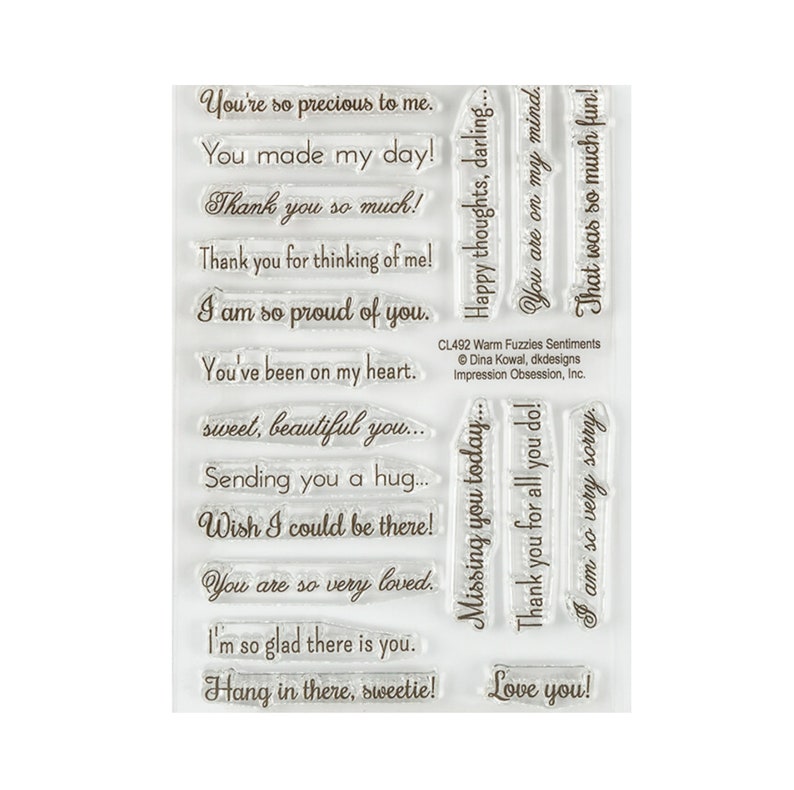 You're so precious to me.
You made my day!
Thank you so much!
Thank you for thinking of me!
I am so proud of you.
You've been on my heart.
sweet, beautiful you...
Sending you a hug...
Wish I could be there!
You are so very loved.
I'm so glad there is you.
Hang in there, sweetie!
Happy thoughts, darling...
You are on my mind.
That was so much fun!
CL492 Warm Fuzzies Sentiments
© Dina Kowal, dkdesigns
Impression Obsession, Inc.
Missing you today...
Thank you for all you do!
I am so very sorry.
Love you!